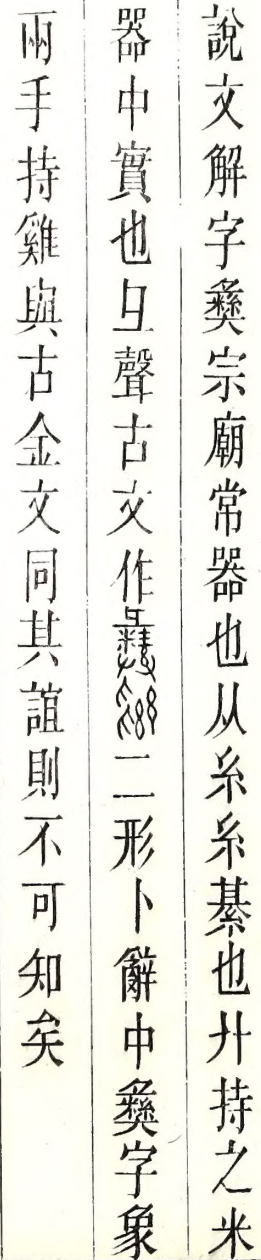 說文解字彝宗廟常器也从糸糸綦也廾持之米
器中實也彑聲古文作二形卜辭中彝字象
兩手持雞與古金文同其誼則不可知矣